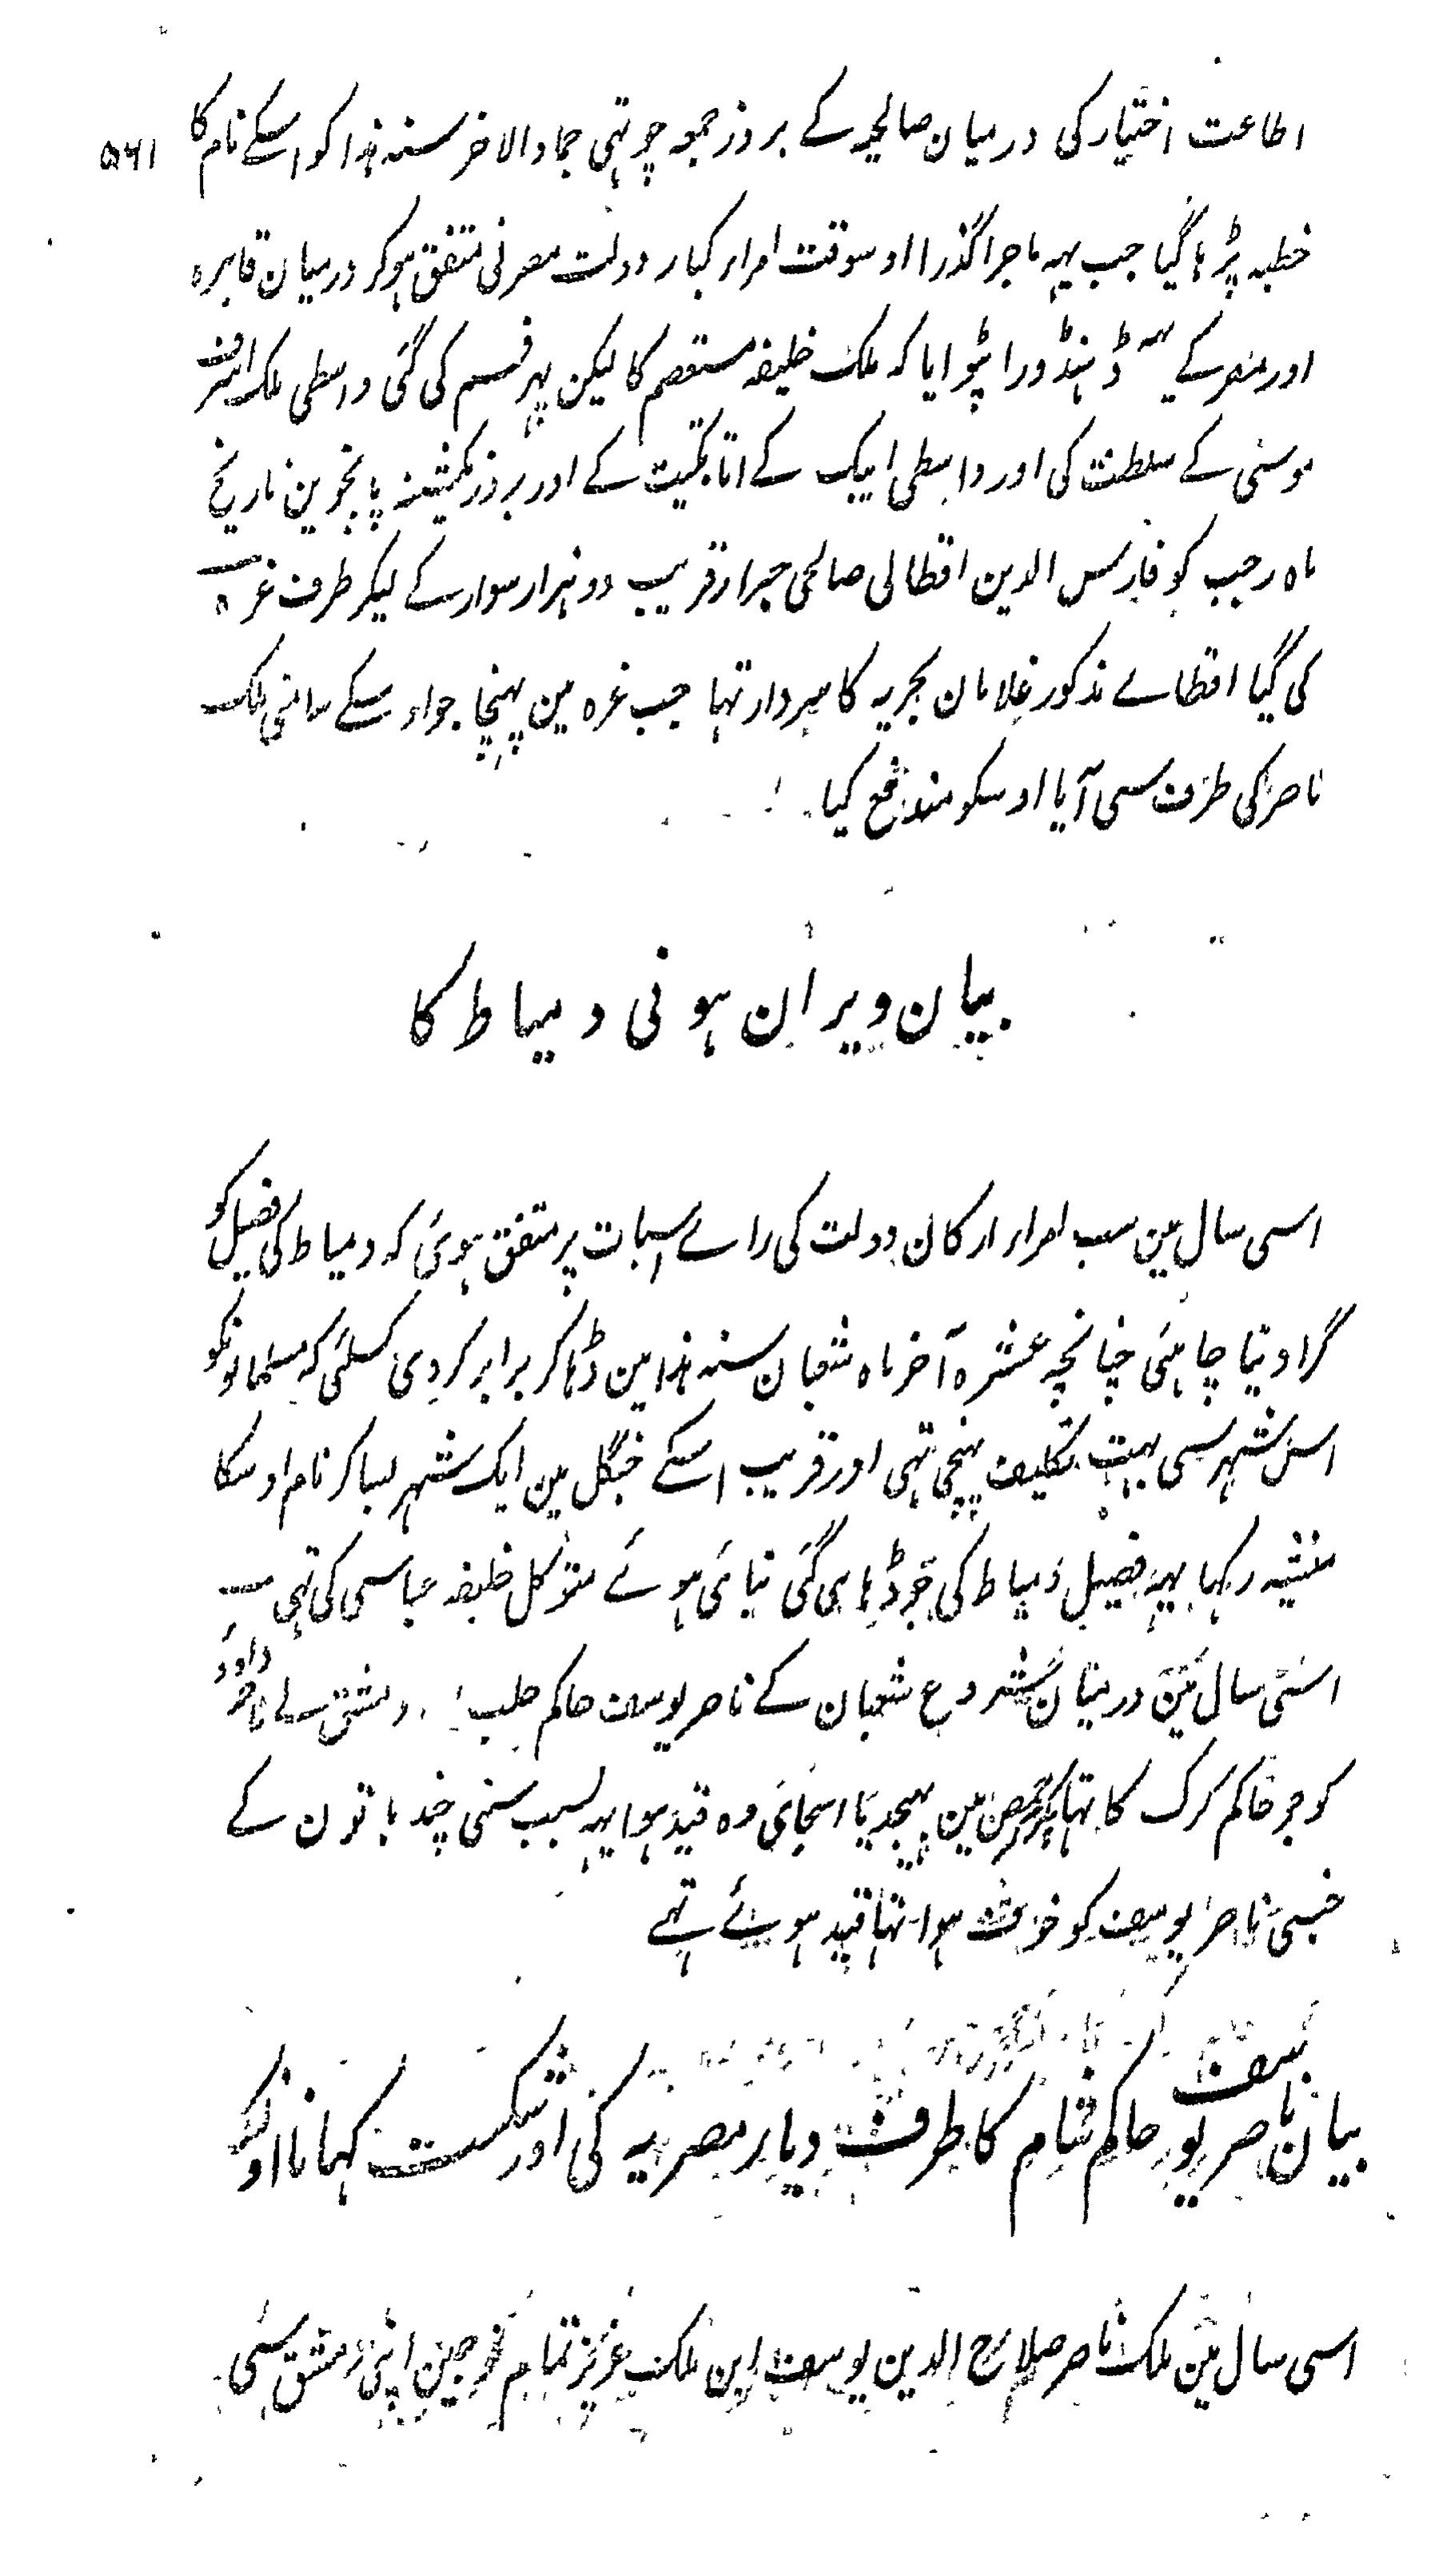 ۵۶۱
اطاعت اختیار کی درمیان صالحیہ کے بروز جمعہ چوتہی جماد الاخر سنہ ہذا کو اسکے نام کا
خطبہ پڑہا گیا جب یہہ ماجرا گذرا اوسوقت امراء کبار دولت مصر نی متفق ہو کر درمیان قاہرہ
اور مصر کے یہہ ڈہنڈورا پٹوایا کہ ملک خلیفہ مستعصم کا لیکن پہر قسم کی گئی واسطی ملک اشرف
موسی کے سلطنت کی اور واسطی ایبک کے اتابکیت کے اور بروز یکشنبہ پانچوین تاریخ
ماہ رجب کو فارس الدین اقطائی صالحی جرار قریب دو ہزار سوار کے لیکر طرف غزہ
کی گیا اقطاے مذکور غلامان بحریہ کا سردار تہا جب غزہ مین پہنچا جو اوسکے سامنی ملک
ناصر کی طرف سی آیا اوسکو مندفع کیا
بیان ویران ہونی دمیاط کا
اسی سال مین سب امراء ارکان دولت کی راے اسبات پر متفق ہوئی کہ دمیاط کی فصیل کو
گرا دینا چاہئی چنانچہ عشرہ آخر ماہ شعبان سنہ ہذا مین ڈہا کر برابر کر دی کسلئی کہ مسلمانونکو
اس شہر سی بہت تکلیف پہنچی تہی اور قریب اسکے جنگل مین ایک شہر بسا کر نام اوسکا
منشیہ رکہا یہہ فصیل دمیاط کی جو ڈہای گئی بنائی ہوئے متوکل خلیفہ عباسی کی تہی
اسی سال مین درمیان شروع شعبان کے ناصر یوسف حاکم حلب و دمشق نے ناصر داود
کو جو حاکم کرک کا تہا پکڑ کر حمص مین بہیجدیا اسجائی وہ قید ہوا یہہ بسبب سنی چند باتون کے
جنسی ناصر یوسف کو خوف ہوا تہا قید ہوئے تہے
بیان ناصر یوسف حاکم شام کا طرف دیار مصریہ کی اور شکست کہانا اوسکو
اسی سال مین ملک ناصر صلاح الدین یوسف ابن ملک عزیز تمام فوجین اپنی دمشق سی